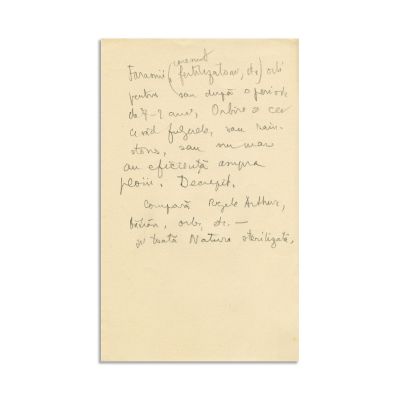 Faraonii (fertilizatori, etc) orbi
pentru sau după o perioadă
de 7-2 ani. Orbire a cei
ce văd fulgerele, sau rain-
stone, sau nu mai
au eficiență asupra
ploii. Decrepit.
Compară Regele Arthur,
bătrân, orb, etc. —
și toată Natura sterilizată.